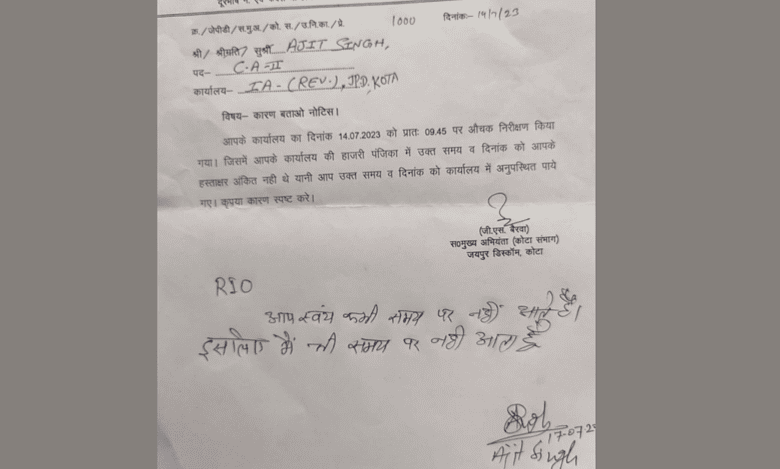 क./जेपीडी/स.मु.अ./को.स./उ.नि.का./प्रे. 1000 दिनांकः- 14/7/23
श्री/ श्रीमति/ सुश्री AJIT SINGH,
पद– C.A-II
कार्यालय– IA-(REV.), JPD, KOTA
विषय– कारण बताओ नोटिस।
आपके कार्यालय का दिनांक 14.07.2023 को प्रातः 09.45 पर औचक निरीक्षण किया
गया। जिसमें आपके कार्यालय की हाजरी पंजिका में उक्त समय व दिनांक को आपके
हस्ताक्षर अंकित नही थे यानी आप उक्त समय व दिनांक को कार्यालय में अनुपस्थित पाये
गए। कृपया कारण स्पष्ट करे।
(जी.एस. बैरवा)
स०मुख्य अभियंता (कोटा संभाग)
जयपुर डिस्कॉम, कोटा
आप स्वंय कभी समय पर नहीं आते हैं।
इसलिए मैं भी समय पर नही आता हूँ
17-07-2
Ajit Singh